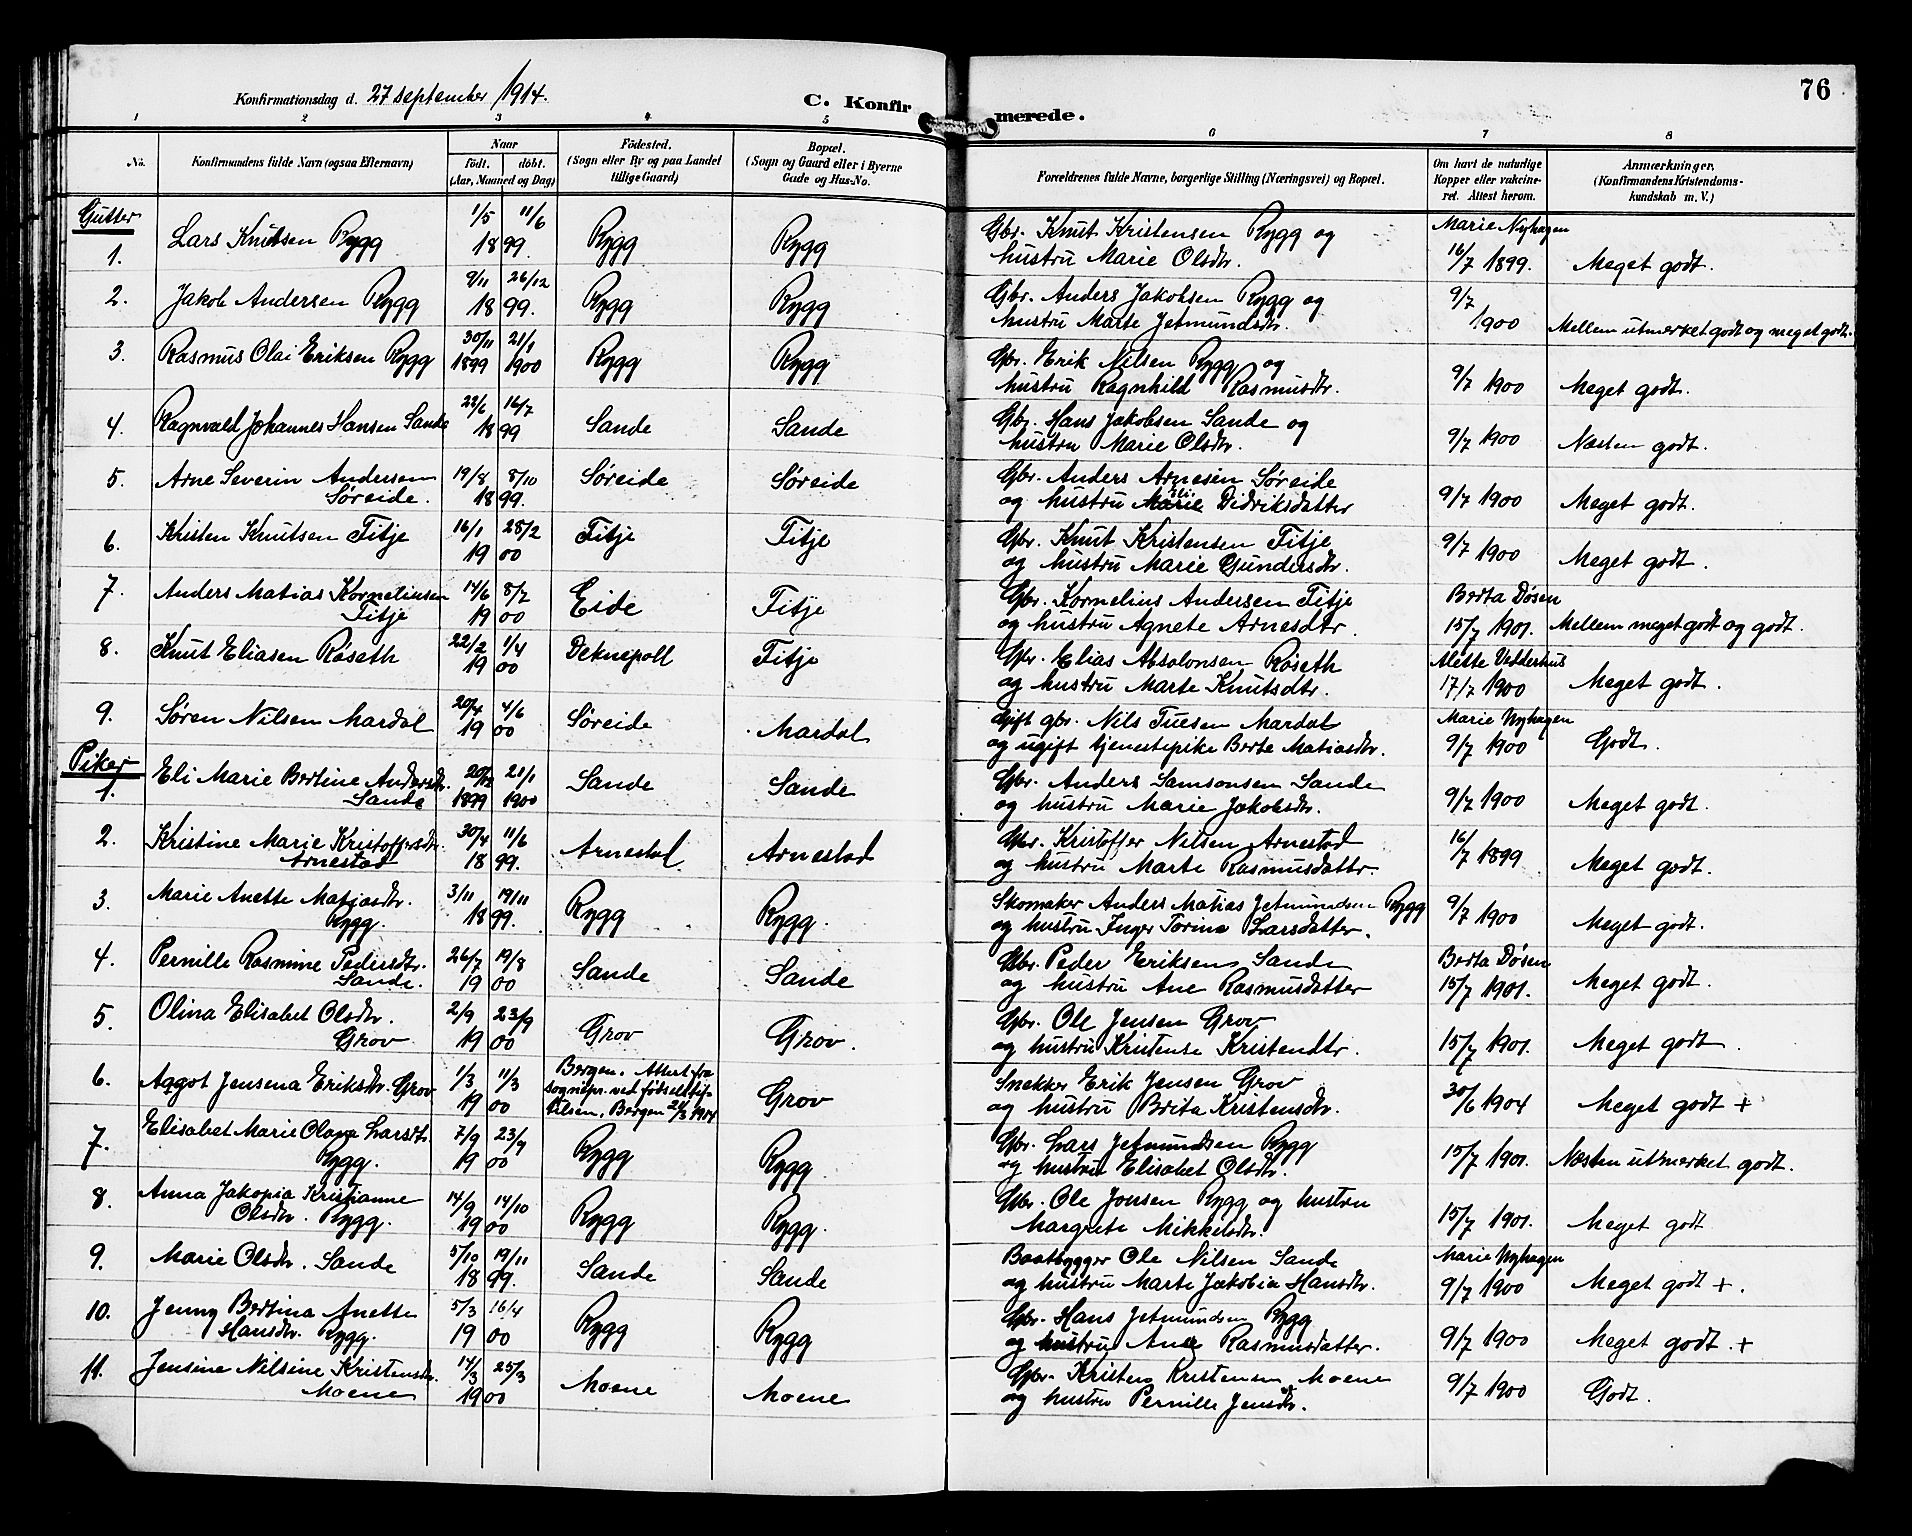 76
Konfirmationsdag d. 27 september 1914.
C. Konfirmerede.
1 2 3 4 5 6 7 8
No.
Konfirmandens fulde Navn (ogsaa Efternavn)
Naar
født. døbt.
(Aar, Maaned og Dag)
Födested.
(Sogn eller By og paa Landet
tillige Gaard)
Bopæl.
(Sogn og Gaard eller i Byerne
Gade og Hus-No.
Forældrenes fulde Navne, borgerlige Stilling (Næringsvei) og Bopæl.
Om havt de naturlige
Kopper eller vakcine-
ret. Attest herom.
Anmærkninger,
(Konfirmandens Kristendoms-
kundskab m. V.)
Gutter
1. Lars Knutsen Rygg 1/5 11/6 1899. Rygg Rygg Gbr. Knut Kristensen Rygg og
hustru Marie Olsdtr. Marie Nyhagen 16/7 1899. Meget godt.
2. Jakob Andersen Rygg 9/11 26/12 1899. Rygg Rygg Gbr. Anders Jakobsen Rygg og
hustru Marte Jetmundsdtr. 9/7 1900 Mellem utmerket godt og meget godt.
3. Rasmus Olai Eriksen Rygg 30/11 1899 21/1 1900 Rygg Rygg Gbr. Erik Nilsen Rygg og
hustru Ragnhild Rasmusdtr. 9/7 1900 Meget godt.
4. Ragnvald Johannes Hansen Sande 22/6 16/7 1899 Sande Sande Gbr. Hans Jakobsen Sande og
hustru Marie Olsdtr. 9/7 1900 Næsten godt.
5. Arne Severin Andersen
Søreide. 19/8 8/10 1899. Søreide Søreide Gbr. Anders Arnesen Søreide
og hustru Marie Didriksdatter 9/7 1900 Meget godt.
6. Kristen Knutsen Fitje 16/1 28/2 1900 Fitje Fitje Gbr. Knut Kristensen Fitje
og hustru Marie Gundersdtr. 9/7 1900 Meget godt.
7. Anders Matias Kornelinsen
Fitje 14/6 8/7 1900 Eide Fitje Gbr. Kornelius Andersen Fitje
og hustru Agnete Arnesdtr. Berta Døsen 15/7 1901. Mellem meget godt og godt.
8. Knut Eliasen Røseth 22/2 1/4 1900 Deknepoll Fitje Gbr. Elias Absolonsen Røseth
og hustru Marte Knutsdtr. Alette Vedderhus 17/7 1900 Meget godt.
9. Søren Nilsen Mardal 20/4 4/6 1900 Søreide Mardal Gift gbr. Nils Tuesen Mardal
og ugift tjenestepike Berte Matiasdtr. Marie Nyhagen 9/7 1900 Godt.
Piker
1. Eli Marie Bertine Andersdtr.
Sande 20/12 1899 21/1 1900 Sande Sande Gbr. Anders Samsonsen Sande
og hustru Marie Jakobsdtr. 9/7 1900 Meget godt.
2. Kristine Marie Kristoffersdtr.
Arnestad 30/4 11/6 1899. Arnestad. Arnestad Gbr. Kristoffer Nilsen Arnestad
og hustru Marte Rasmusdattr. 16/7 1899 Meget godt.
3. Marie Anette Matiasdtr.
Rygg. 3/11 19/11 1899. Rygg Rygg. Skomaker Anders Matias Jetmundsen Rygg
og hustru Inger Torine Larsdatter. 9/7 1900 Meget godt.
4. Pernille Rasmine Pedersdtr.
Sande. 26/7 19/8 1900 Sande Sande Gbr. Peder Eriksen Sande
og hustru Ane Rasmusdatter Berta Døsen 15/7 1901. Meget godt.
5. Olina Elisabet Olsdtr.
Grov 2/9 23/9 1900 Grov Grov. Gbr. Ole Jensen Grov
og hustru Kristense Kristendtr. 15/7 1901. Meget godt.
6. Aagot Jensena Eriksdtr. Grov 1/3 11/3 1900 Bergen. Attest fra
sognepr. ved fødselsstif-
telsen, Bergen 1914 Grov Snekker Erik Jensen Grov
og hustru Brita Kristensdtr. 30/6 1904 Meget godt +
7. Elisabet Marie Olave Larsdtr.
Rygg. 7/9 23/9 1900 Rygg Rygg. Gbr. Lars Jetmundsen Rygg
og hustru Elisabet Olsdtr. 15/7 1901. Næsten utmerket godt.
8. Anna Jakopia Kristianne
Olsdtr. Rygg. 14/9 14/10 1900 Rygg Rygg. Gbr. Ole Jonsen Rygg og hustru
Margrete Mikkelsdtr. 15/7 1901. Meget godt
9. Marie Olsdtr. Sande 5/10 19/11 1899. Sande Sande Baatbygger Ole Nilsen Sande
og hustru Marte Jakobia Hansdtr. Marie Nyhagen 9/7 1900 Meget godt +.
10. Jenny Bertina Anette
Hansdtr. Rygg. 5/3 16/4 1900 Rygg Rygg Gbr. Hans Jetmundsen Rygg
og hustru Ane Rasmusdatter. 9/7 1900 Meget godt. +
11. Jensine Nilsine Kristensdtr.
Moene 14/3 25/3 1900 Moene Moene Gbr. Kristen Kristensen Moene
og hustru Pernille Jensdtr. 9/7 1900 Godt.